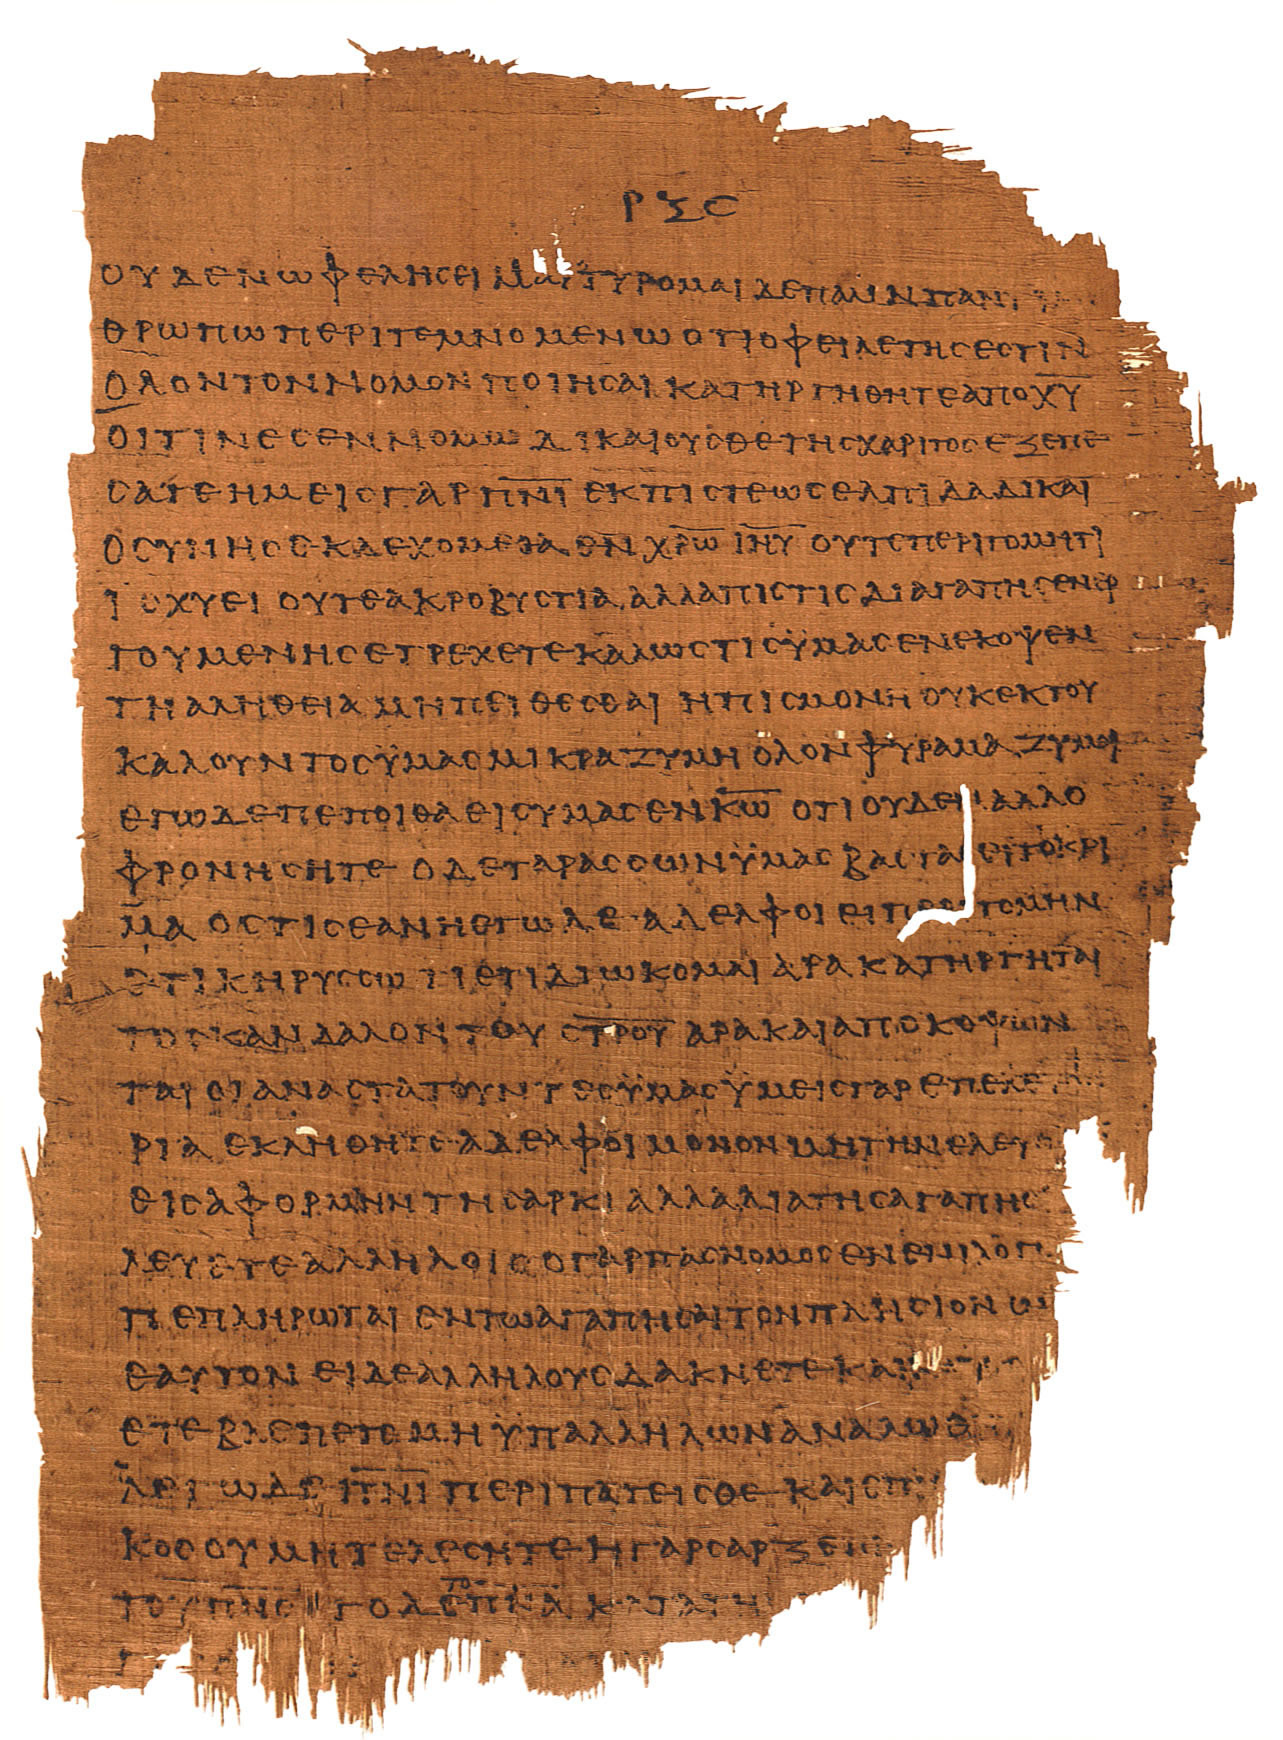 ΡΞϚ
ΟΥΔΕΝ ΩΦΕΛΗϹΕΙ ΜΑΡΤΥΡΟΜΑΙ ΔΕ ΠΑΛΙΝ ΠΑΝ
ΘΡΩΠΩ ΠΕΡΙΤΕΜΝΟΜΕΝΩ ΟΤΙ ΟΦΕΙΛΕΤΗϹ ΕϹΤΙΝ
ΟΛΟΝ ΤΟΝ ΝΟΜΟΝ ΠΟΙΗϹΑΙ ΚΑΤΗΡΓΗΘΗΤΕ ΑΠΟ Χ̅Υ̅
ΟΙΤΙΝΕϹ ΕΝ ΝΟΜΩ ΔΙΚΑΙΟΥϹΘΕ ΤΗϹ ΧΑΡΙΤΟϹ ΕΞΕΠΕ
ϹΑΤΕ ΗΜΕΙϹ ΓΑΡ Π̅Ν̅Ι̅ ΕΚ ΠΙϹΤΕΩϹ ΕΛΠΙΔΑ ΔΙΚΑΙ
ΟϹΥΝΗϹ ΕΚΔΕΧΟΜΕΘΑ ΕΝ Χ̅Ρ̅Ω̅ Ι̅Η̅Υ̅ ΟΥΤΕ ΠΕΡΙΤΟΜΗ ΤΙ
ΙϹΧΥΕΙ ΟΥΤΕ ΑΚΡΟΒΥϹΤΙΑ ΑΛΛΑ ΠΙϹΤΙϹ ΔΙ ΑΓΑΠΗϹ ΕΝΕΡ
ΓΟΥΜΕΝΗϹ ΕΤΡΕΧΕΤΕ ΚΑΛΩϹ ΤΙϹ ΫΜΑϹ ΕΝΕΚΟΨΕΝ
ΤΗ ΑΛΗΘΕΙΑ ΜΗ ΠΕΙΘΕϹΘΑΙ Η ΠΙϹΜΟΝΗ ΟΥΚ ΕΚ ΤΟΥ
ΚΑΛΟΥΝΤΟϹ ΫΜΑϹ ΜΙΚΡΑ ΖΥΜΗ ΟΛΟΝ ΦΥΡΑΜΑ ΖΥΜΟΙ
ΕΓΩ ΔΕ ΠΕΠΟΙΘΑ ΕΙϹ ΥΜΑϹ ΕΝ Κ̅Ω̅ ΟΤΙ ΟΥΔΕΝ ΑΛΛΟ
ΦΡΟΝΗϹΗΤΕ Ο ΔΕ ΤΑΡΑϹϹΩΝ ΫΜΑϹ ΒΑϹΤΑϹΕΙ ΤΟ ΚΡΙ
ΜΑ ΟϹΤΙϹ ΕΑΝ Η ΕΓΩ ΔΕ ΑΔΕΛΦΟΙ ΕΙ ΠΕΡΙΤΟΜΗΝ
ΕΤΙ ΚΗΡΥϹϹΩ ΤΙ ΕΤΙ ΔΙΩΚΟΜΑΙ ΑΡΑ ΚΑΤΗΡΓΗΤΑΙ
ΤΟ ϹΚΑΝΔΑΛΟΝ ΤΟΥ Ϲ̅Τ̅Ρ̅Ο̅Υ̅ ΑΡΑ ΚΑΙ ΑΠΟΚΟΨΩΝ
ΤΑΙ ΟΙ ΑΝΑϹΤΑΤΟΥΝΤΕϹ ΫΜΑϹ ΫΜΕΙϹ ΓΑΡ ΕΠ ΕΛΕ
ΡΙΑ ΕΚΛΗΘΗΤΕ ΑΔΕΛΦΟΙ ΜΟΝΟΝ ΜΗ ΤΗΝ ΕΛΕΥ
ΘΙϹ ΑΦΟΡΜΗΝ ΤΗ ϹΑΡΚΙ ΑΛΛΑ ΔΙΑ ΤΗϹ ΑΓΑΠΗϹ
ΛΕΥΕΤΕ ΑΛΛΗΛΟΙϹ Ο ΓΑΡ ΠΑϹ ΝΟΜΟϹ ΕΝ ΕΝΙ ΛΟΓ
ΠΕΠΛΗΡΩΤΑΙ ΕΝ ΤΩ ΑΓΑΠΗϹΑΙ ΤΟΝ ΠΛΗϹΙΟΝ
ΕΑΥΤΟΝ ΕΙ ΔΕ ΑΛΛΗΛΟΥϹ ΔΑΚΝΕΤΕ ΚΑΙ
ΕΤΕ ΒΛΕΠΕΤΕ ΜΗ ΫΠ ΑΛΛΗΛΩΝ ΑΝΑΛΩ
ΛΕΓΩ ΔΕ Π̅Ν̅Ι̅ ΠΕΡΙΠΑΤΕΙϹΘΕ ΚΑΙ ΕΠ
ΚΟϹ ΟΥ ΜΗ ΤΕΛΕϹΗΤΕ Η ΓΑΡ ϹΑΡΞ ΕΠ
ΤΟΥ Π̅Ν̅Ϲ̅ ΤΟ ΔΕ Π̅Ν̅Α̅ ΚΑΤΑ ΤΗ